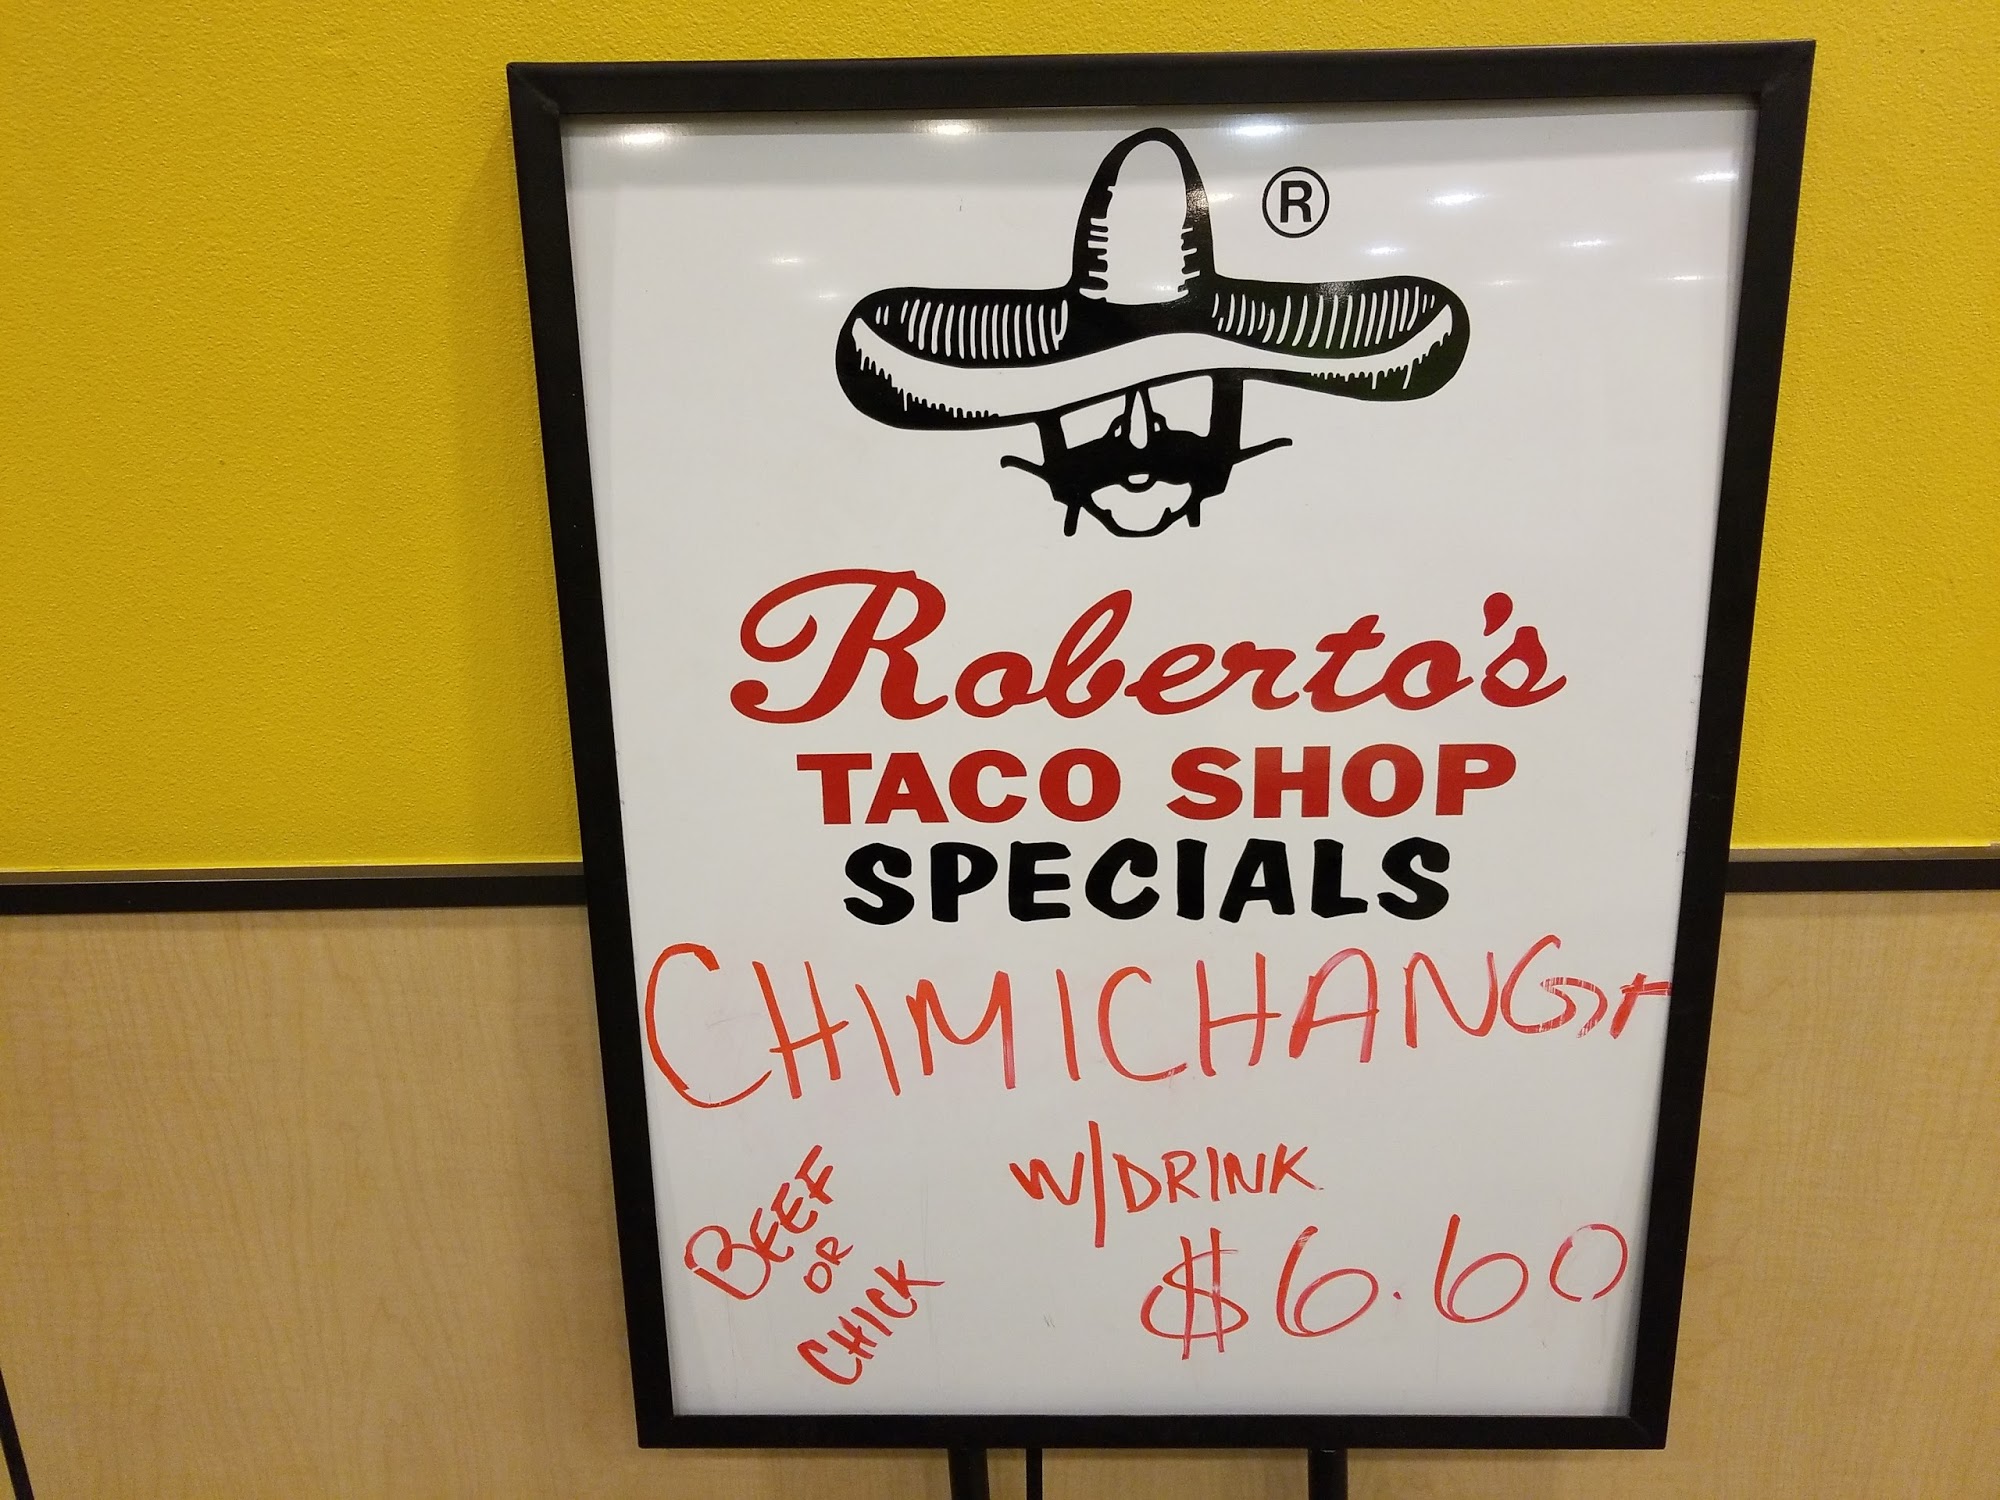 ®
Roberto's
TACO SHOP
SPECIALS
CHIMICHANGA
W/DRINK
$6.60
BEEF
OR
CHICK